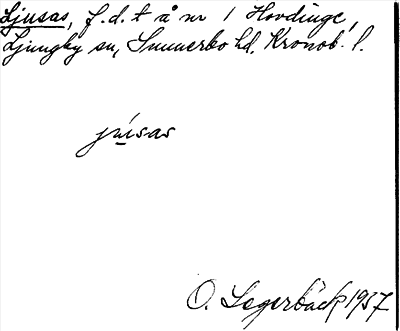 Ljusas, f.d. t å nr 1 Hovdinge,
Ljungby sn, Sunnerbo hd. Kronob. l.
jùsas
O. Legerbäck 1937